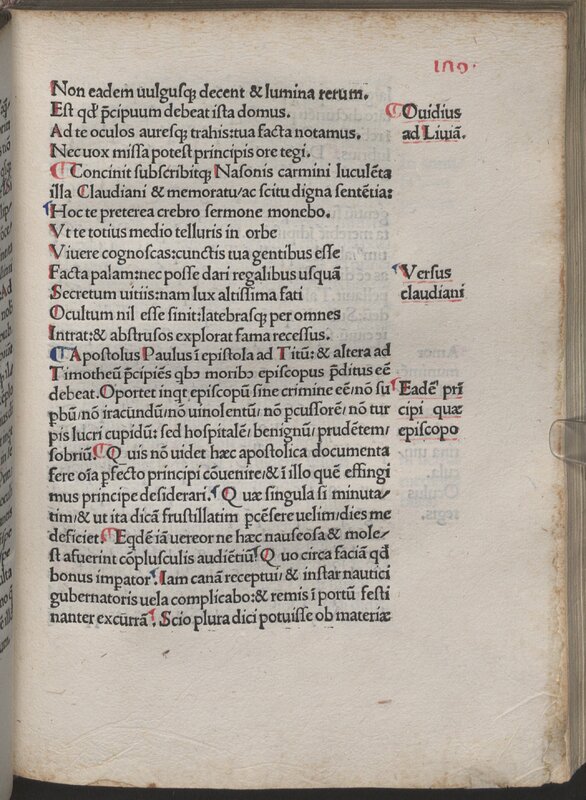 Non eadem uulgusq; decent & lumina rerum.
Est qd' p̄cipuum debeat ista domus.
Ad te oculos auresq; trahis: tua facta notamus.
Nec uox missa potest principis ore tegi.
Ouidius
ad Liuiā.
Concinit subscribitq; Nasonis carmini luculēta
illa Claudiani & memoratu/ ac scitu digna sentētia:
Hoc te preterea crebro sermone monebo.
Vt te totius medio telluris in orbe
Viuere cognoscas: cunctis tua gentibus esse
Facta palam: nec posse dari regalibus usquā
Secretum uitiis: nam lux altissima fati
Ocultum nil esse sinit: latebrasq; per omnes
Intrat: & abstrusos explorat fama recessus.
Versus
claudiani
Apostolus Paulus ī epistola ad Titū: & altera ad
Timotheū p̄cipiēs qbꝫ moribꝫ episcopus p̄ditus eē
debeat. Oportet inqt episcopū sine crimine eē/ nō su
pbū/ nō iracundū/ nō uinolentū/ nō pcussorē/ nō tur
pis lucri cupidū: sed hospitalē/ benignū/ prudētem/
sobriū. Q uis nō uidet hæc apostolica documenta
fere oīa pfecto principi cōuenire/ & ī illo quē effingi
mus principe desiderari. Q uæ singula si minuta/
tim/ & ut ita dicā frustillatim pcēsere uelim/ dies me
deficiet. Eqdē iā uereor ne hæc nauseosa & mole/
st afuerint cōplusculis audiētiū Q uo circa faciā qd
bonus impator. Iam canā receptui/ & instar nautici
gubernatoris uela complicabo: & remis ī portū festi
nanter excurrā. Scio plura dici potuisse ob materiæ
Eadē prī
cipi quæ
episcopo